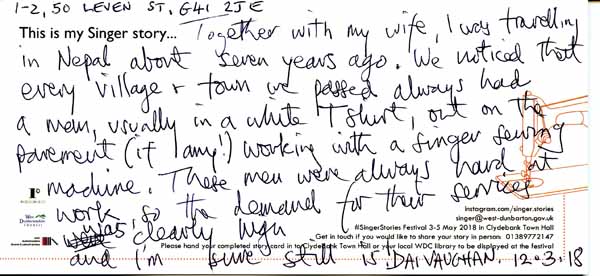 1-2, 50 LEVEN ST, G41 2JE
This is my Singer story... Together with my wife, I was travelling
in Nepal about seven years ago. We noticed that
every village & town we passed always had
a man, usually in a white T shirt, out on the
pavement (if any!) working with a singer sewing
machine. These men were always hard at
work, so the demand for their services
was clearly high
and I'm sure still is! DAI VAUGHAN. 12.3.18
instagram.com/singer.stories
singer@west-dunbarton.gov.uk
#SingerStories Festival 3-5 May 2018 in Clydebank Town Hall
Get in touch if you would like to share your story in person: 01389772147
Please hand your completed story card in to Clydebank Town Hall or your local WDC library to be displayed at the festival